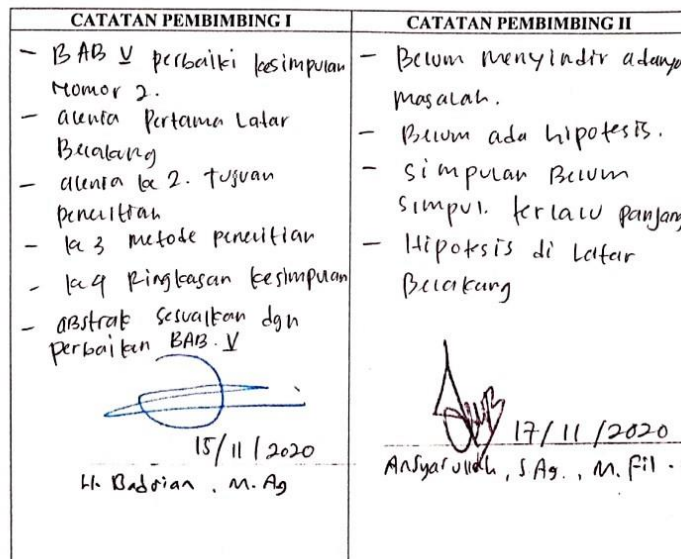 CATATAN PEMBIMBING I
- BAB V perbaiki kesimpulan
Nomor 2.
- alenia Pertama Latar
Belakang
- alenia ke 2. tujuan
penelitian
- ke 3 metode penelitian
- ke 4 Ringkasan kesimpulan
- abstrak sesuaikan dgn
perbaikan BAB. V
15/11/2020
H. Badrian, M. Ag
CATATAN PEMBIMBING II
- Belum menyindir adanya
masalah.
- Belum ada hipotesis.
- Simpulan Belum
simpul. terlalu panjang
- Hipotesis di Latar
Belakang
17/11/2020
Ansyarullah, S.Ag., M. Fil.